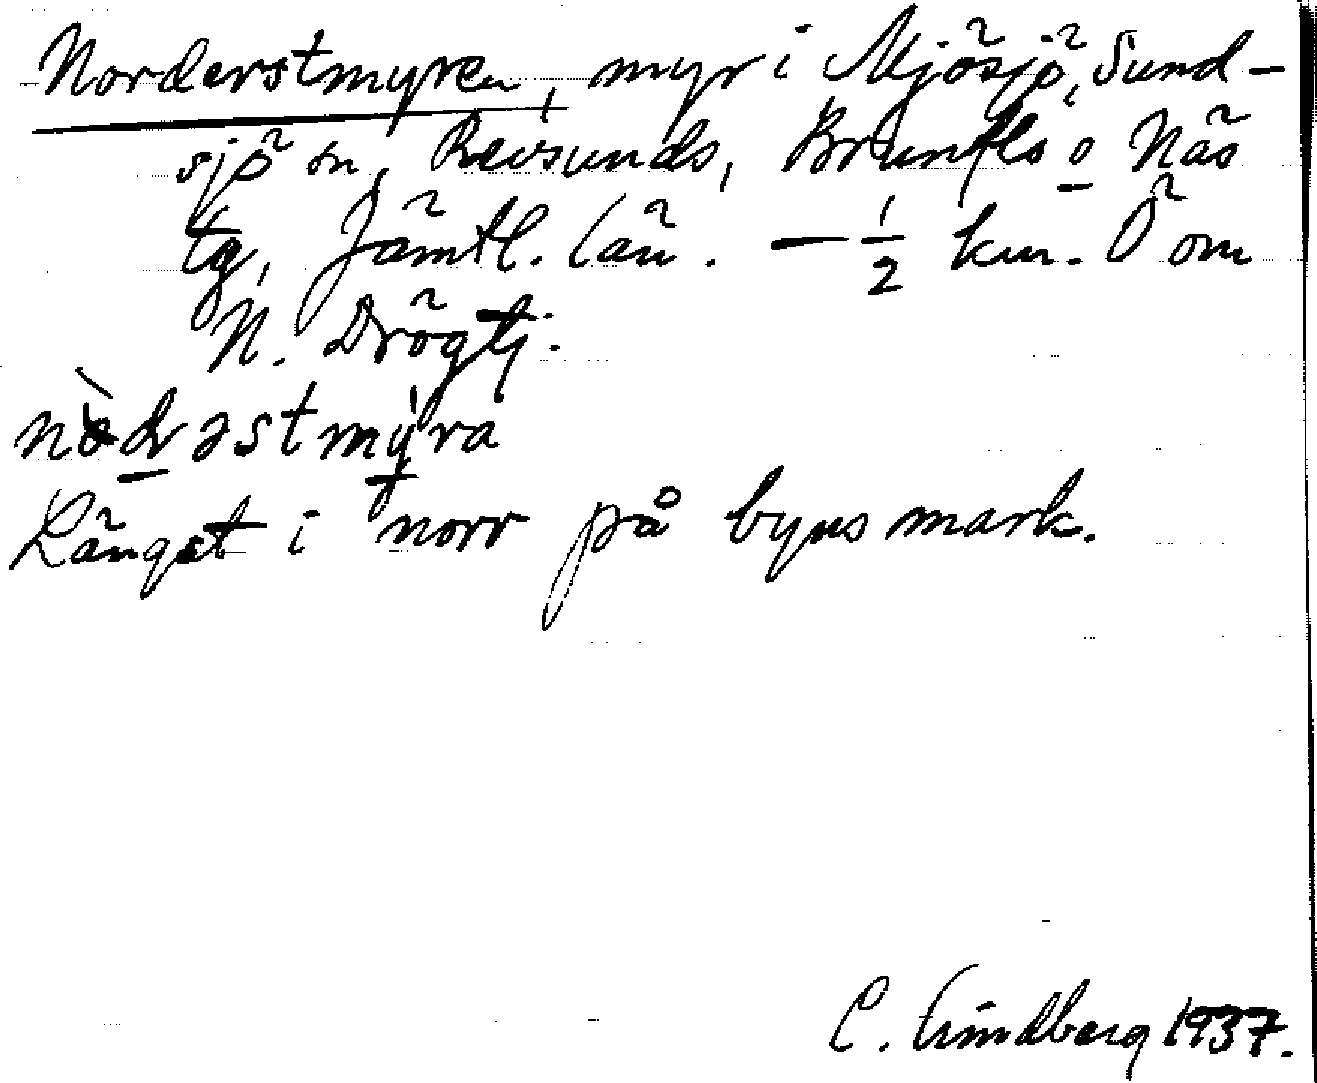 Norderstmyren, myr i Mjösjö, Sund-
sjö sn, Revsunds, Brunflo o Näs
tg, Jämtl. län. — 1/2 km. Ö om
N. Drögtj.
mỳra
Längst i norr på byns mark.
C. Lindberg 1937.